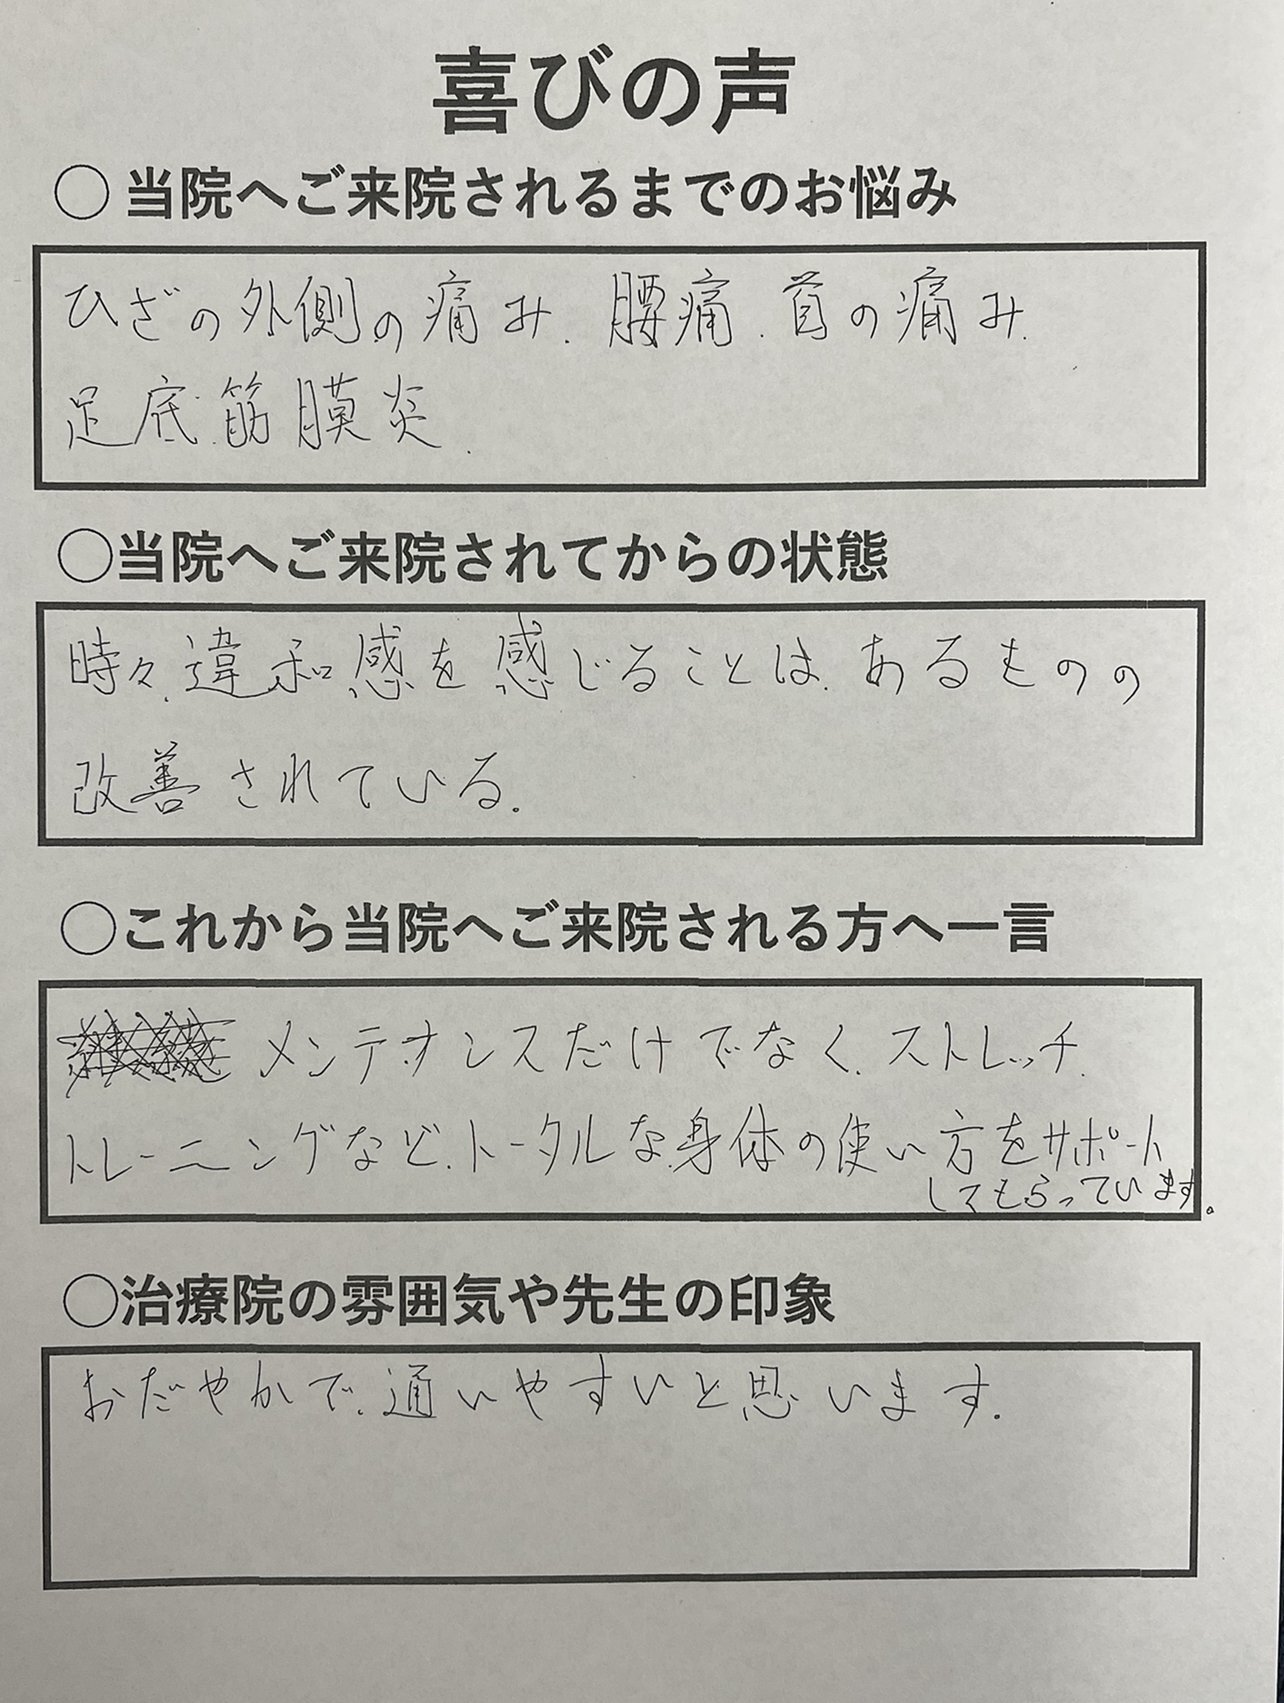 喜びの声
○ 当院へご来院されるまでのお悩み
ひざの外側の痛み. 腰痛. 首の痛み.
足底筋膜炎.
○当院へご来院されてからの状態
時々違和感を感じることは、あるものの
改善されている.
○これから当院へご来院される方へ一言
メンテオンスだけでなく、ストレッチ、
トレーニングなど、トータルな身体の使い方をサポート
してもらっています。
○治療院の雰囲気や先生の印象
おだやかで、通いやすいと思います.